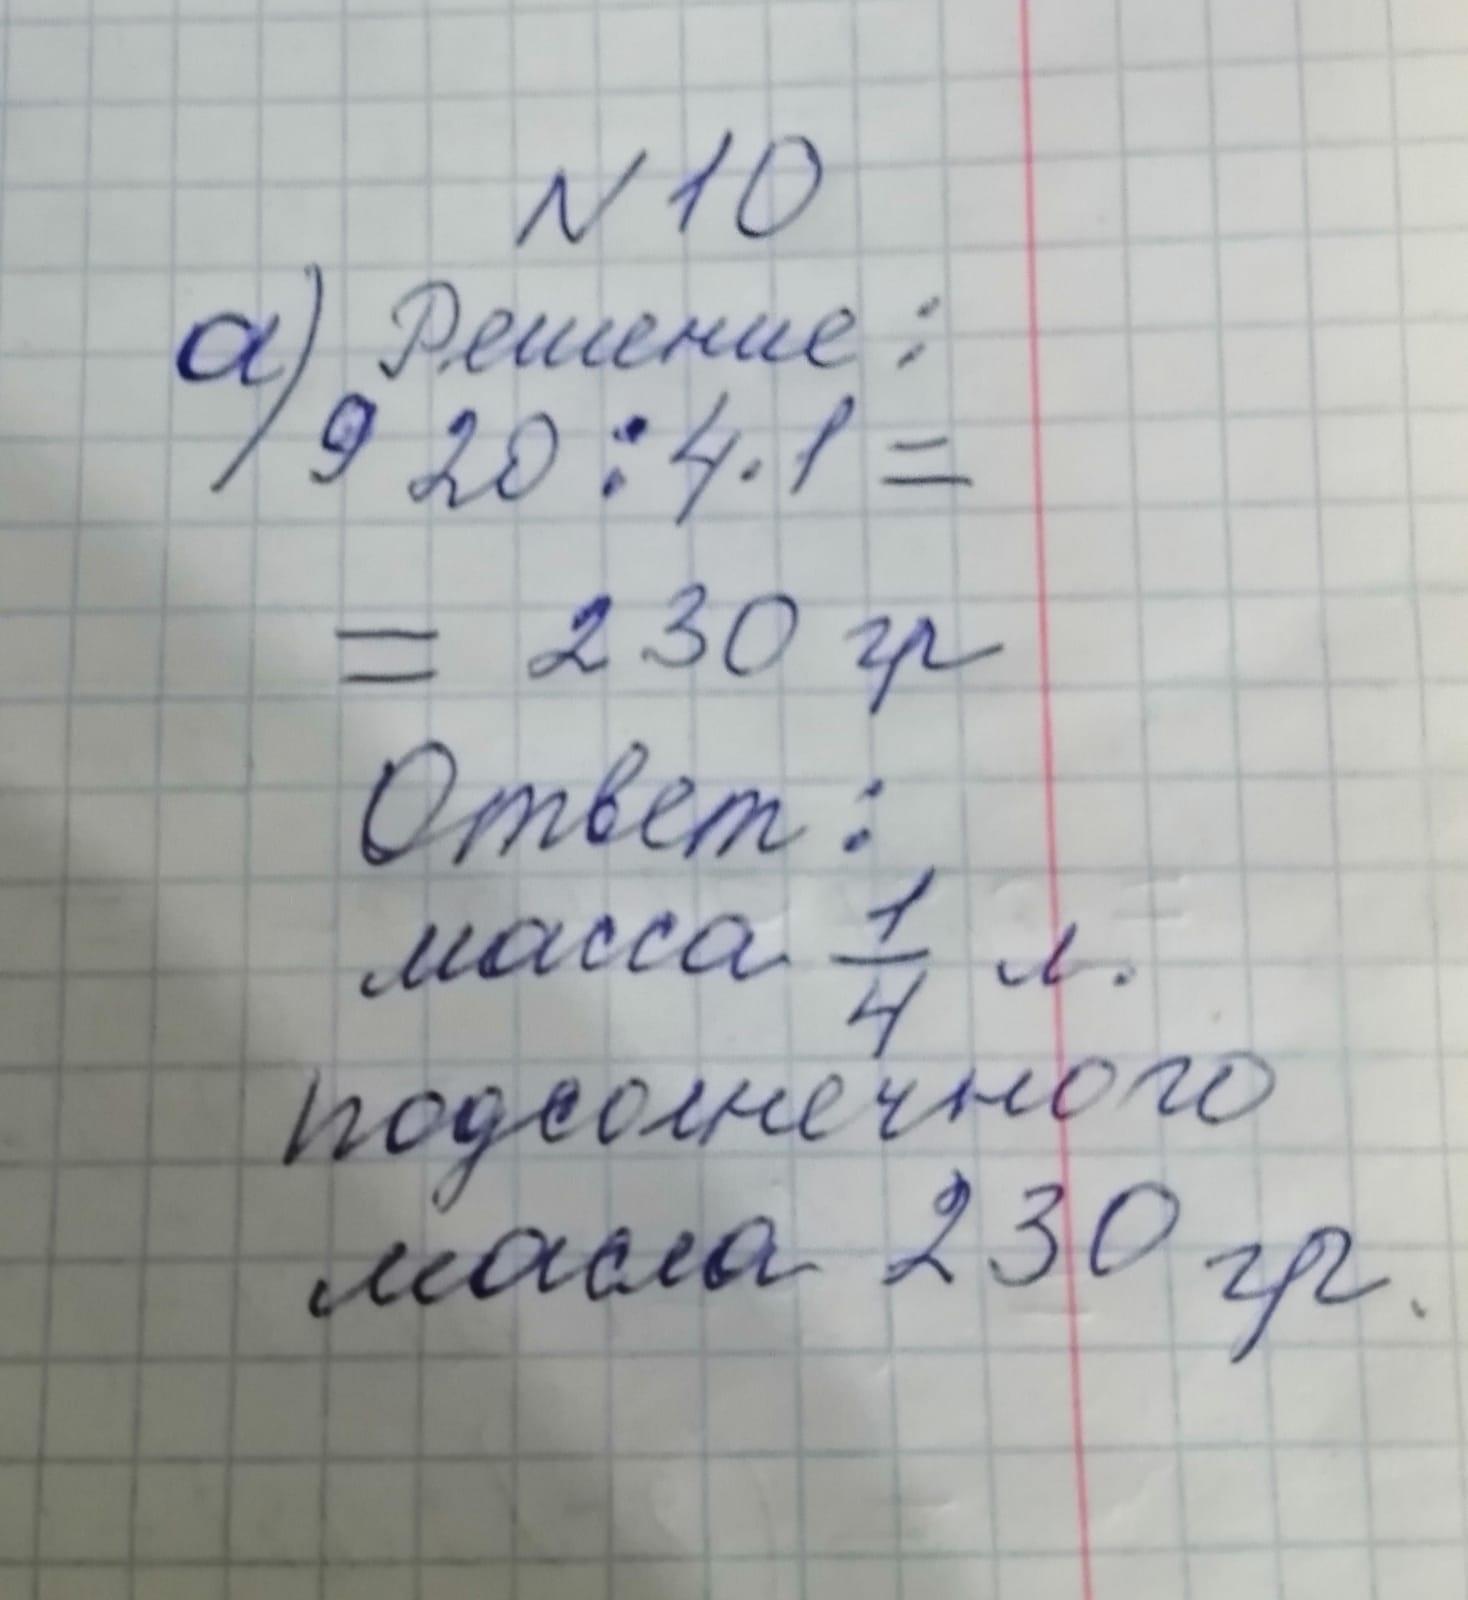 N 10
а) Решение:
920 : 4 · 1 =
= 230 гр
Ответ:
масса 1/4 л.
подсолнечного
масла 230 гр.